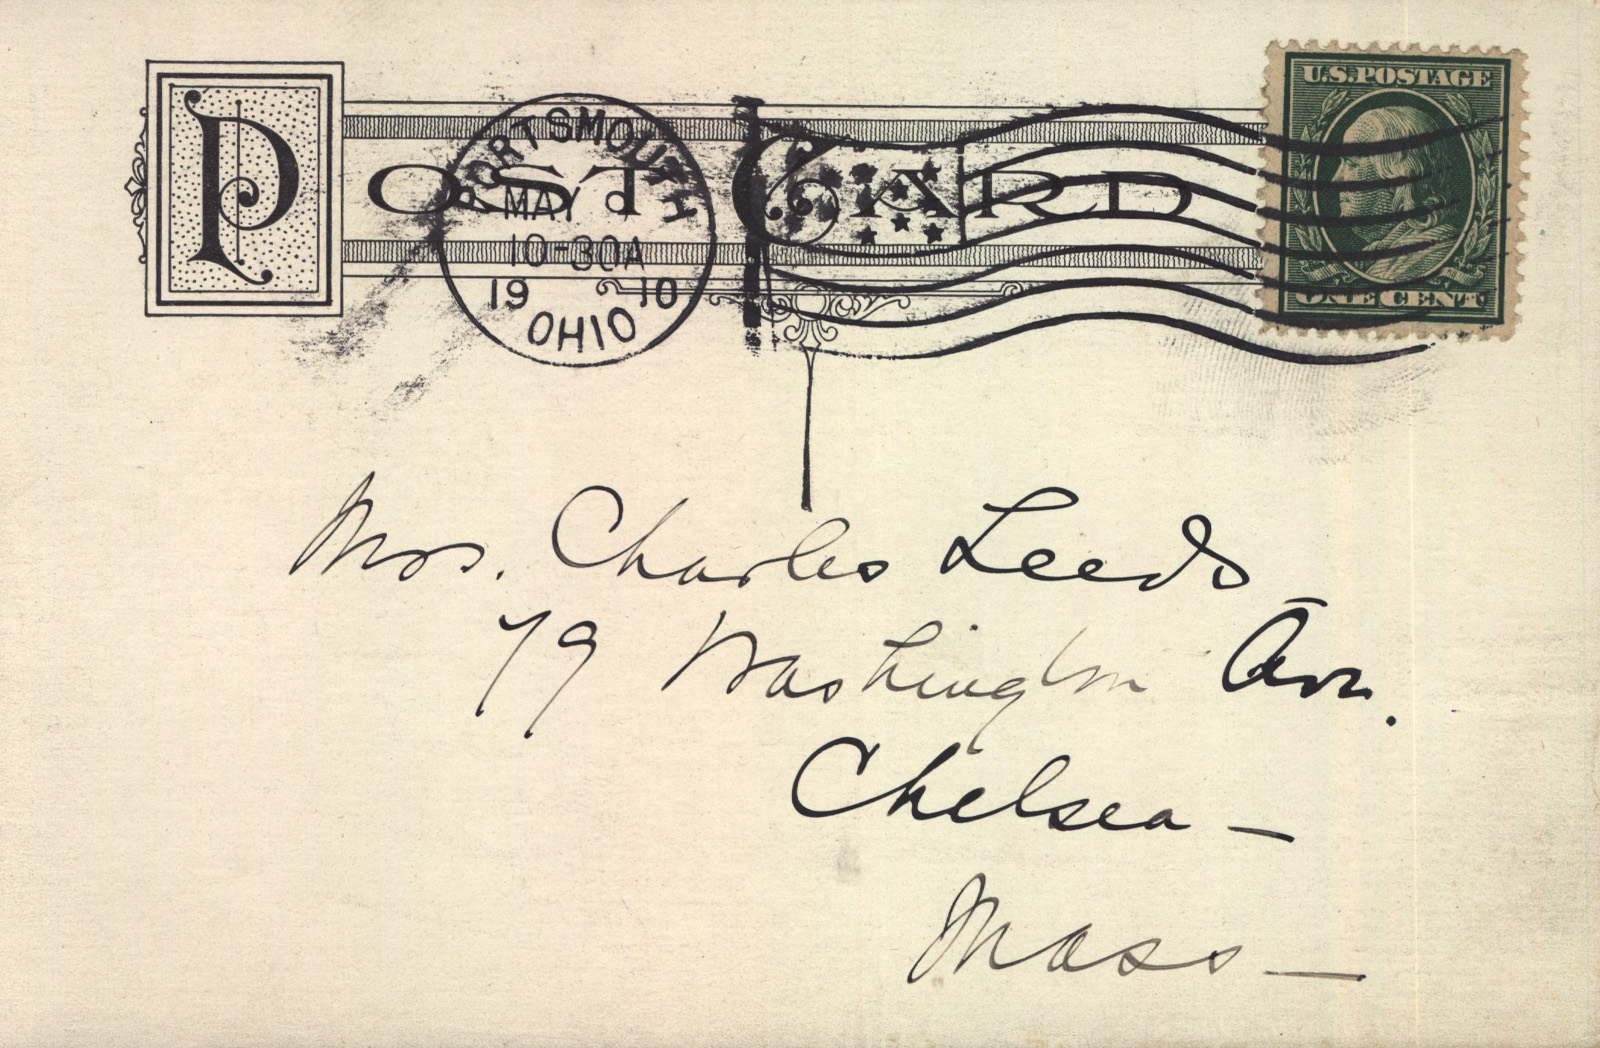 POST CARD
PORTSMOUTH
MAY
10-30A
1910
OHIO
U.S. POSTAGE
ONE CENT
Mrs. Charles Leeds
79 Washington Ave.
Chelsea —
Mass —